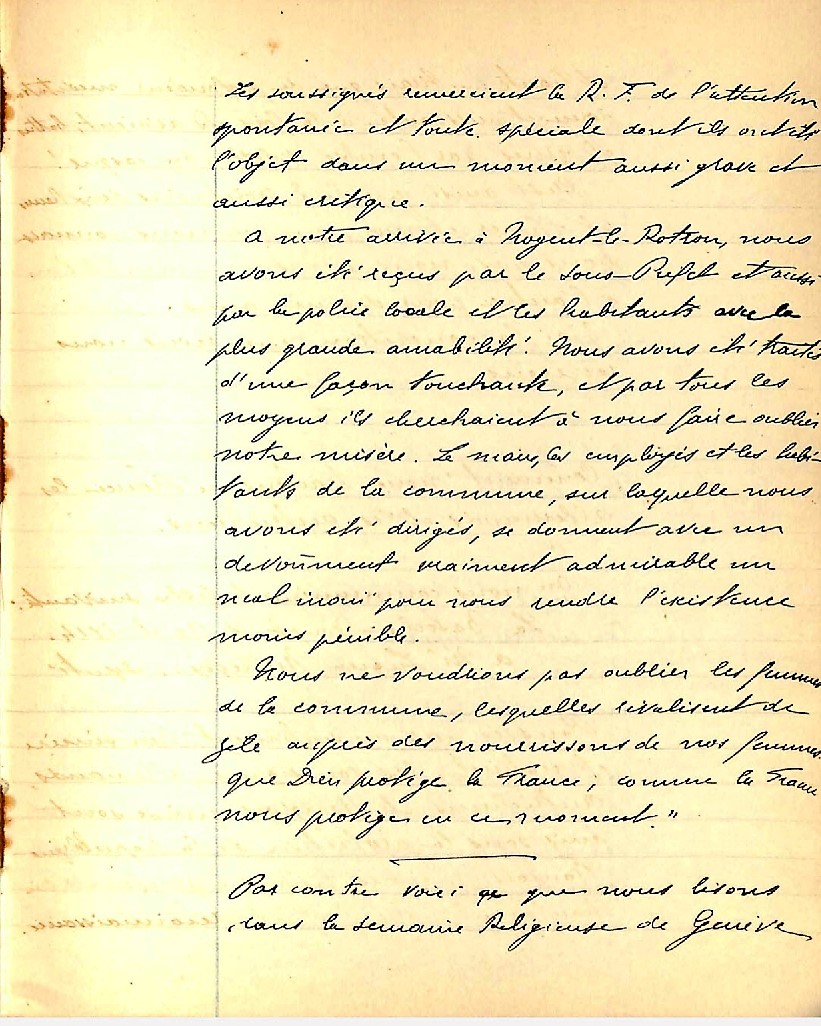 Les soussignés remercient la R. F. de l'attention
spontanée et toute spéciale dont ils ont été
l'objet dans un moment aussi grave et
aussi critique.
A notre arrivée à Nogent-le-Rotrou, nous
avons été reçus par le Sous-Préfet et aussi
par la police locale et les habitants avec la
plus grande amabilité. Nous avons été traités
d'une façon touchante, et par tous les
moyens ils cherchaient à nous faire oublier
notre misère. Le maire, les employés et les habi-
tants de la commune, sur laquelle nous
avons été dirigés, se donnent avec un
devoûment vraiment admirable un
mal inouï pour nous rendre l'existence
moins pénible.
Nous ne voudrions pas oublier les femmes
de la commune, lesquelles rivalisent de
zèle auprès des nourrissons de nos femmes.
que Dieu protège la France, comme la France
nous protège en ce moment."
Par contre voici ce que nous lisons
dans la Semaine Religieuse de Genève